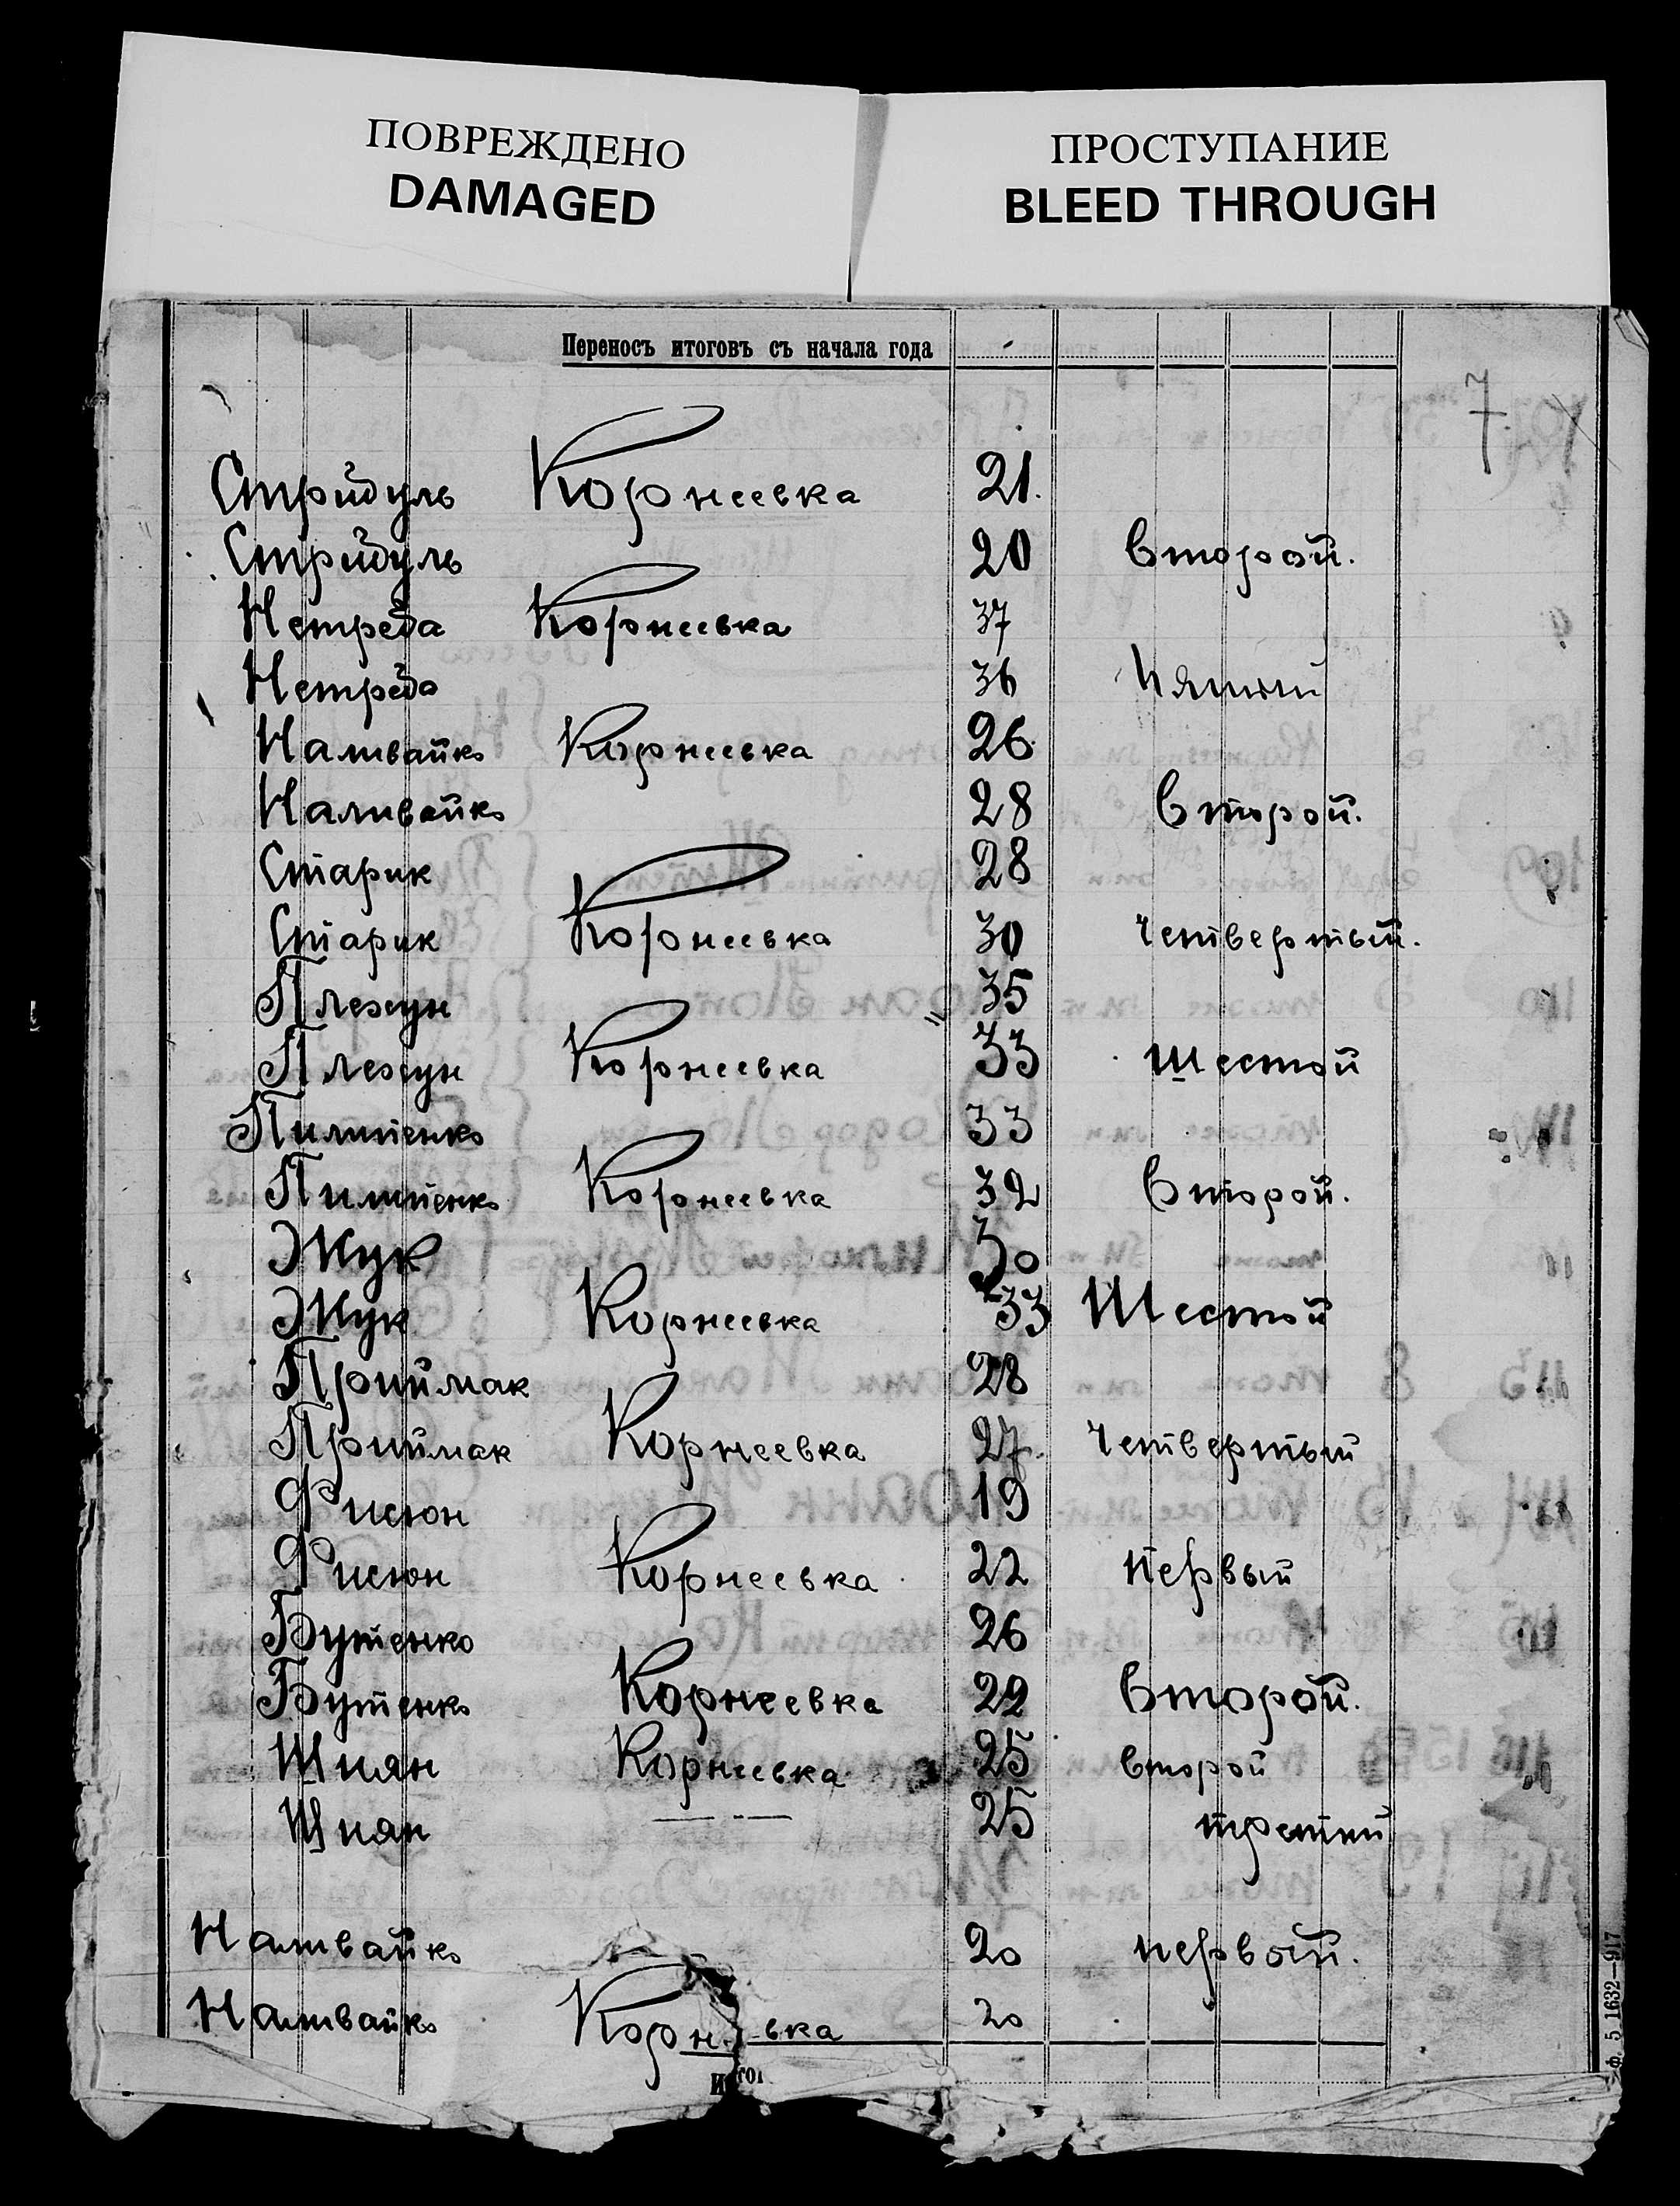 ПОВРЕЖДЕНО
DAMAGED
ПРОСТУПАНИЕ
BLEED THROUGH
Переносъ итоговъ съ начала года
7.
Стридуль Корнеевка 21.
Стридуль 20 второй.
Нетреба Корнеевка 37
Нетреба 36 пятый
Наливайко Корнеевка 26.
Наливайко 28 второй.
Старик 28
Старик Корнеевка 30 четвертый.
Плехун 35
Плехун Корнеевка 33 шестой
Пилипенко 33
Пилипенко Корнеевка 32 второй.
Жук 30
Жук Корнеевка 33 Шестой
Приймак 28
Приймак Корнеевка 27. четвертый
Фисюн 19
Фисюн Корнеевка 22 первый
Бутенко 26
Бутенко Корнеевка 22 второй.
Шиян Корнеевка 25 второй
Шиян — „ — 25 третий
Наливайко 20 первый.
Наливайко Корн вка 20
ф. 5 1632—917